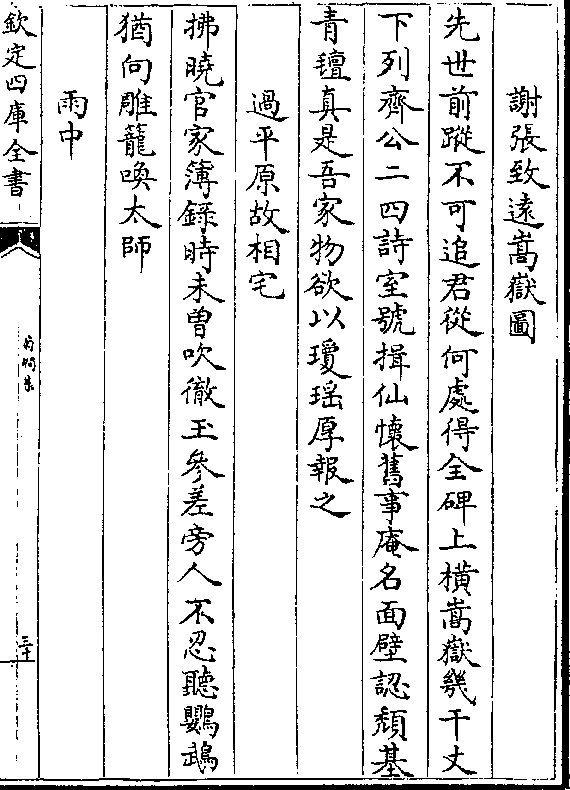 謝張致遠嵩嶽圖
先世前蹤不可追君從何處得全碑上橫嵩嶽幾千丈
下列齊公二四詩室號揖仙懷舊事庵名面壁認頹基
青氊真是吾家物欲以瓊瑤厚報之
過平原故相宅
拂曉官家簿錄時未曾吹徹玉參差旁人不忍聽鸚鵡
猶向雕籠喚太師
雨中
欽定四庫全書
三十